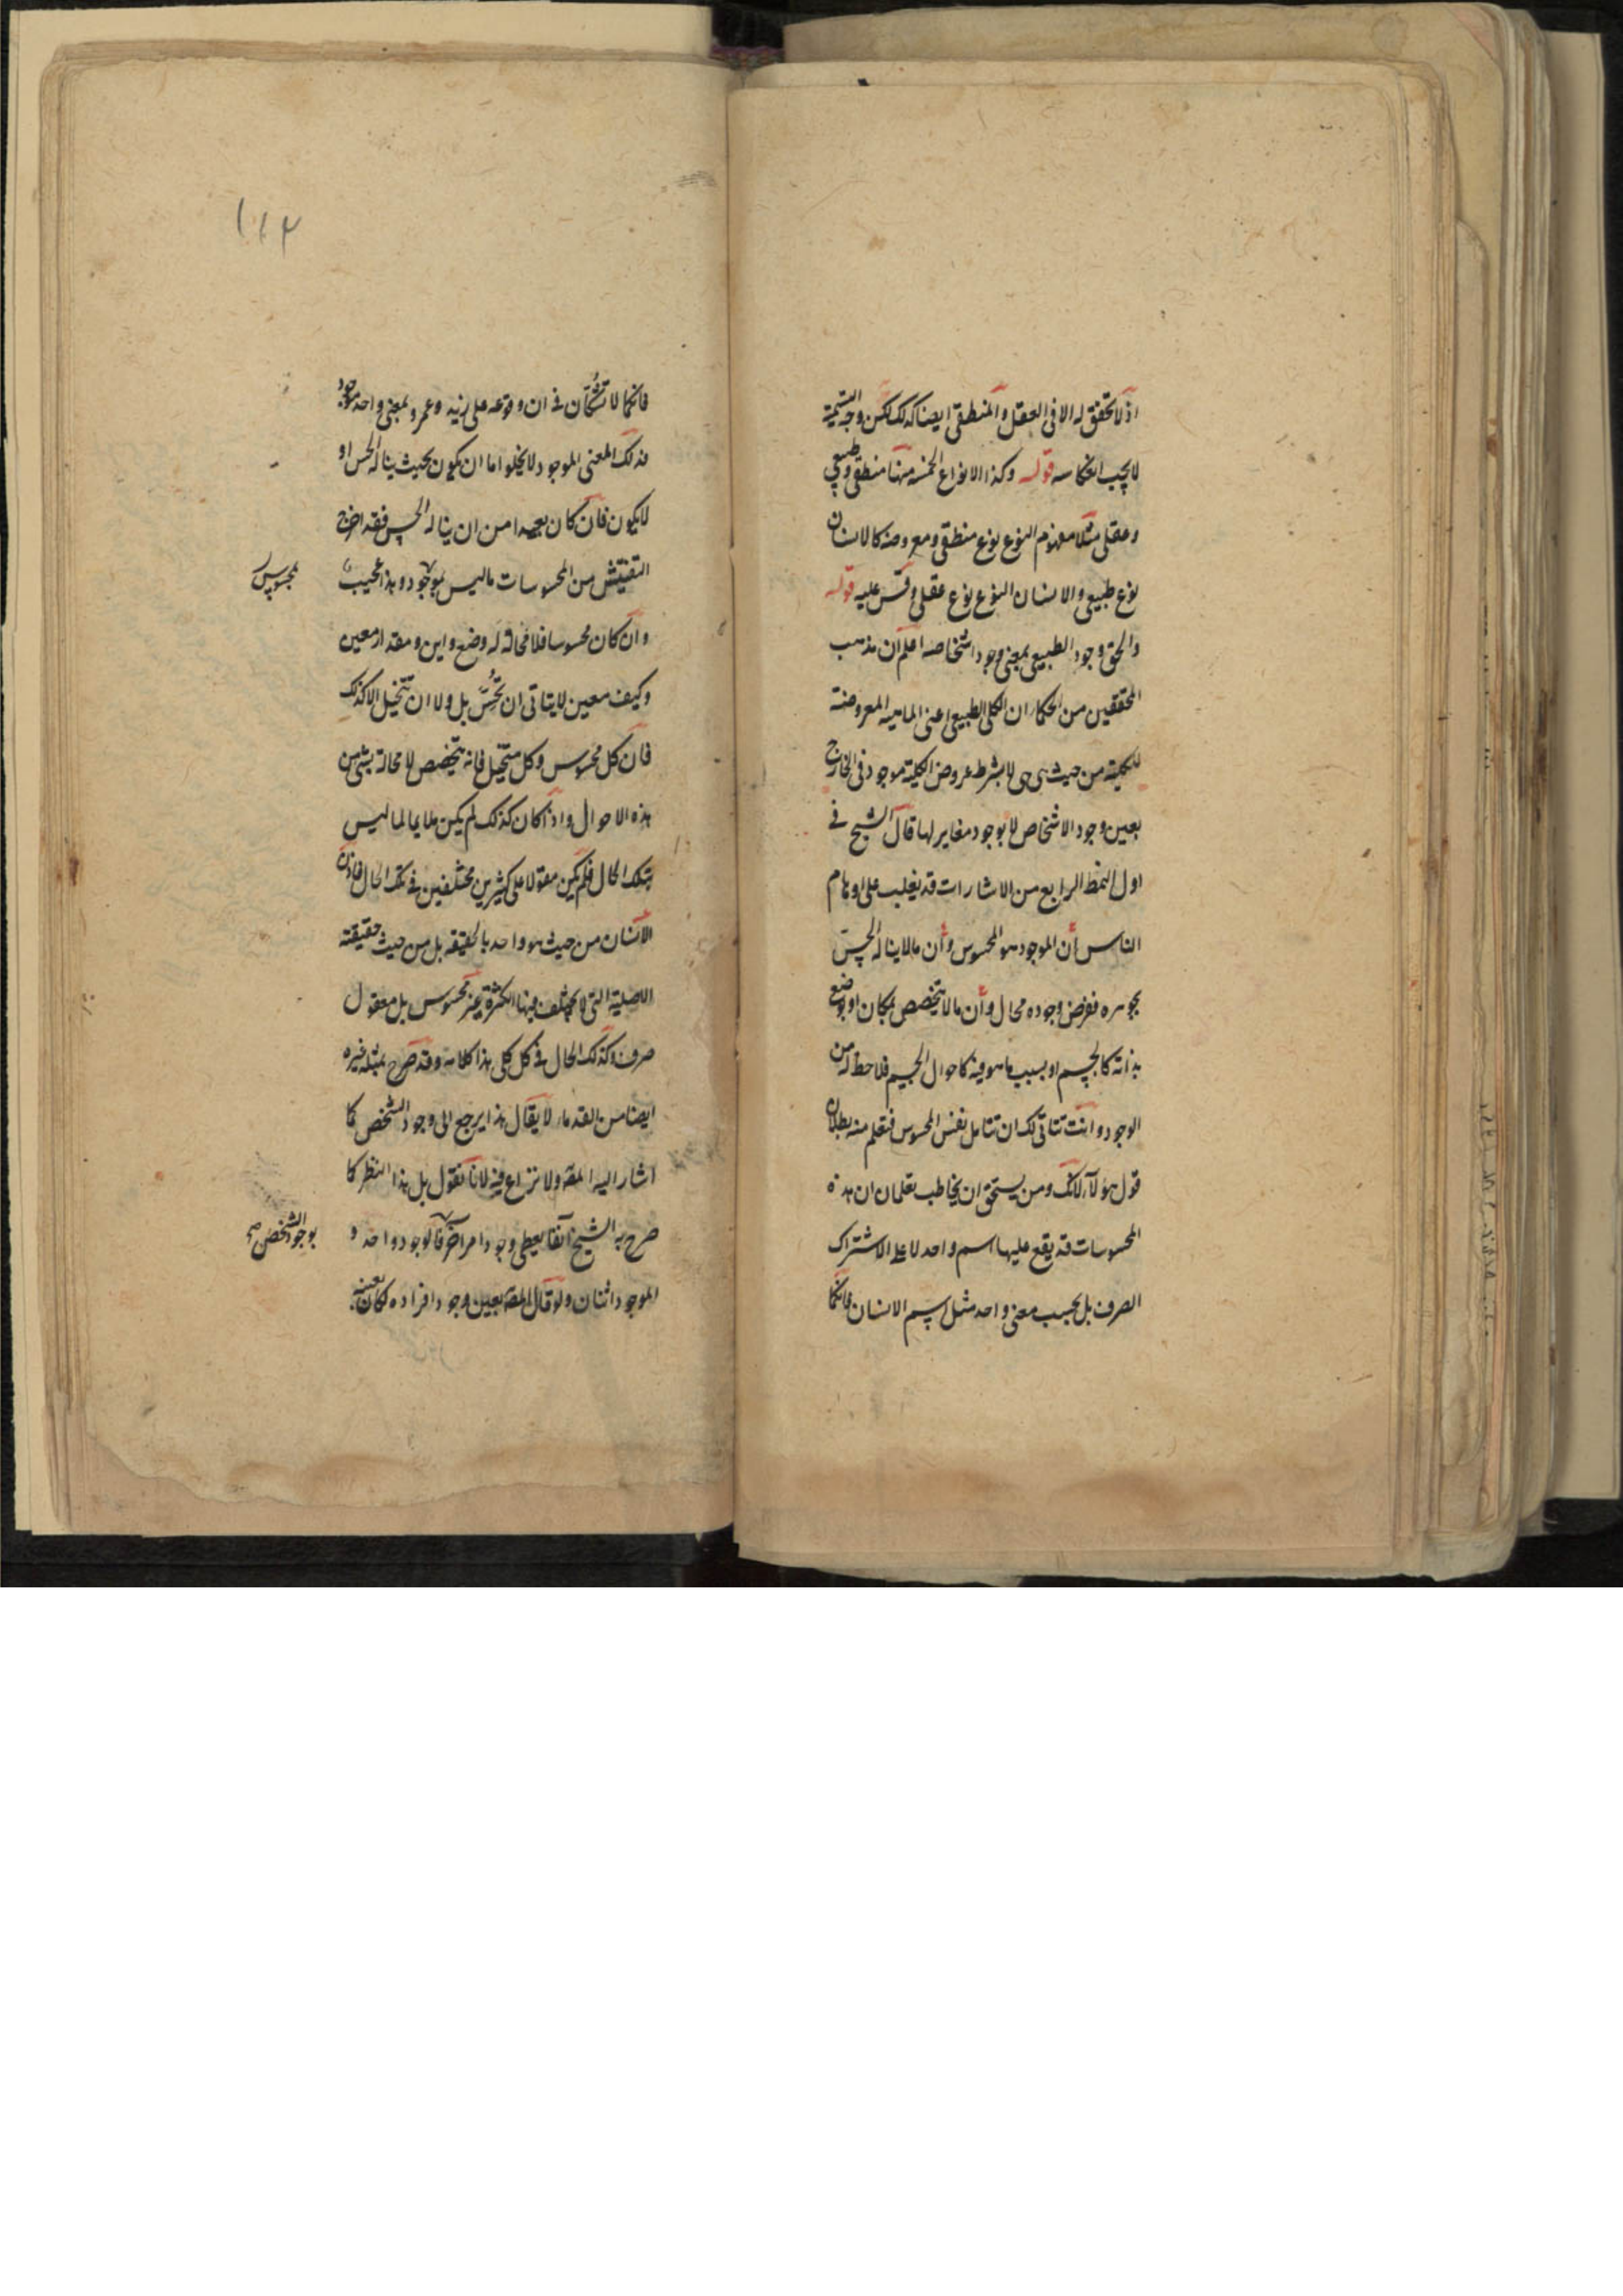 اذ لا تحقق له الا فى العقل والمنطقى ايضا كذلك لكن وجه التسمية
لا يجب انعكاسه قوله وكذا الانواع الخمسة منها منطقى وطبيعى
وعقلى مثلا مفهوم النوع نوع منطقى ومعروضه كالانسان
نوع طبيعى والانسان النوع نوع عقلى وقس عليه قوله
والحق وجود الطبيعى بمعنى وجود اشخاصه اعلم ان مذهب
المحققين من الحكماء ان الكلى الطبيعى اعنى الماهية المعروضة
للكلية من حيث هى هى لا بشرط عروض الكلية موجود فى الخارج
بعين وجود الاشخاص لا بوجود مغاير لها قال الشيخ فى
اول النمط الرابع من الاشارات قد يغلب على اوهام
الناس أن الموجود هو المحسوس وأن ما لا يناله الحسّ
بجوهره ففرض وجوده محال وأن ما لا يتخصص بمكان او وضع
بذاته كالجسم او بسبب ما هو فيه كاحوال الجسم فلا حظ له من
الوجود وانت تتاتى لك ان تتامل نفس المحسوس فتعلم منه بطلان
قول هؤلآء لانك ومن يستحق ان يخاطب تعلمان ان هذه
المحسوسات قد يقع عليها اسم واحد لا على الاشتراك
الصرف بل بحسب معنى واحد مثل اسم الانسان فانكما
١١٢
فانكما لا تشكّان فى ان وقوعه على زيد وعمرو بمعنى واحد موجود
فذلك المعنى الموجود لا يخلوا اما ان يكون بحيث يناله الحس او
لا يكون فان كان بعيدا من ان يناله الحس فقد اخرج
التفتيش من المحسوسات ما ليس بموجود وهذا عجيب
بمحسوس
وان كان محسوسا فلا محالة له وضع واين ومقدار معين
وكيف معين لا يتاتى ان تُحَسَّ بل ولا ان تتخيل الا كذلك
فان كل محسوس وكل متخيل فانه يتخصص لا محالة بشئ من
هذه الاحوال واذا كان كذلك لم يكن ملايما لما ليس
بتلك الحال فلم يكن مقولا على كثيرين مختلفين فى تلك الحال فاذن
الانسان من حيث هو واحد بالحقيقة بل من حيث حقيقته
الاصلية التى لا تختلف فيها الكثرة غير محسوس بل معقول
صرف وكذلك الحال فى كل كلى هذا كلامه وقد صرح بمثله غيره
ايضا من القدماء لا يقال هذا يرجع الى وجود الشخص كما
اشار اليه المص ولا نزاع فيه لانا نقول بل هذا النظر كما
صرح به الشيخ آنفا يعطى وجود امر آخر فالوجود واحد و
بوجود الشخص صح
الموجود اثنان ولو قال المص بعين وجود افراده لكان بعينه